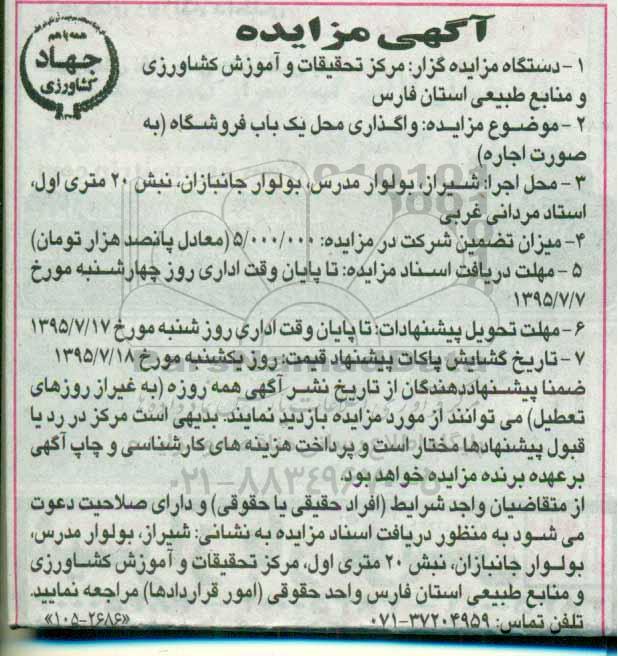 آگهی مزایده
همه با هم
جهاد
کشاورزی
۱- دستگاه مزایده گزار: مرکز تحقیقات و آموزش کشاورزی
و منابع طبیعی استان فارس
۲- موضوع مزایده: واگذاری محل یک باب فروشگاه (به
صورت اجاره)
۳- محل اجرا: شیراز، بولوار مدرس، بولوار جانبازان، نبش ۲۰ متری اول،
استاد مردانی غربی
۴- میزان تضمین شرکت در مزایده: ۵/۰۰۰/۰۰۰ (معادل پانصد هزار تومان)
۵- مهلت دریافت اسناد مزایده: تا پایان وقت اداری روز چهارشنبه مورخ
۱۳۹۵/۷/۷
۶- مهلت تحویل پیشنهادات: تا پایان وقت اداری روز شنبه مورخ ۱۳۹۵/۷/۱۷
۷- تاریخ گشایش پاکات پیشنهاد قیمت: روز یکشنبه مورخ ۱۳۹۵/۷/۱۸
ضمنا پیشنهاددهندگان از تاریخ نشر آگهی همه روزه (به غیر از روزهای
تعطیل) می توانند از مورد مزایده بازدید نمایند. بدیهی است مرکز در رد یا
قبول پیشنهادها مختار است و پرداخت هزینه های کارشناسی و چاپ آگهی
بر عهده برنده مزایده خواهد بود.
از متقاضیان واجد شرایط (افراد حقیقی یا حقوقی) و دارای صلاحیت دعوت
می شود به منظور دریافت اسناد مزایده به نشانی: شیراز، بولوار مدرس،
بولوار جانبازان، نبش ۲۰ متری اول، مرکز تحقیقات و آموزش کشاورزی
و منابع طبیعی استان فارس واحد حقوقی (امور قراردادها) مراجعه نمایید.
تلفن تماس: ۳۷۲۰۴۹۵۹-۰۷۱
«۱۰۵-۲۶۸۶»